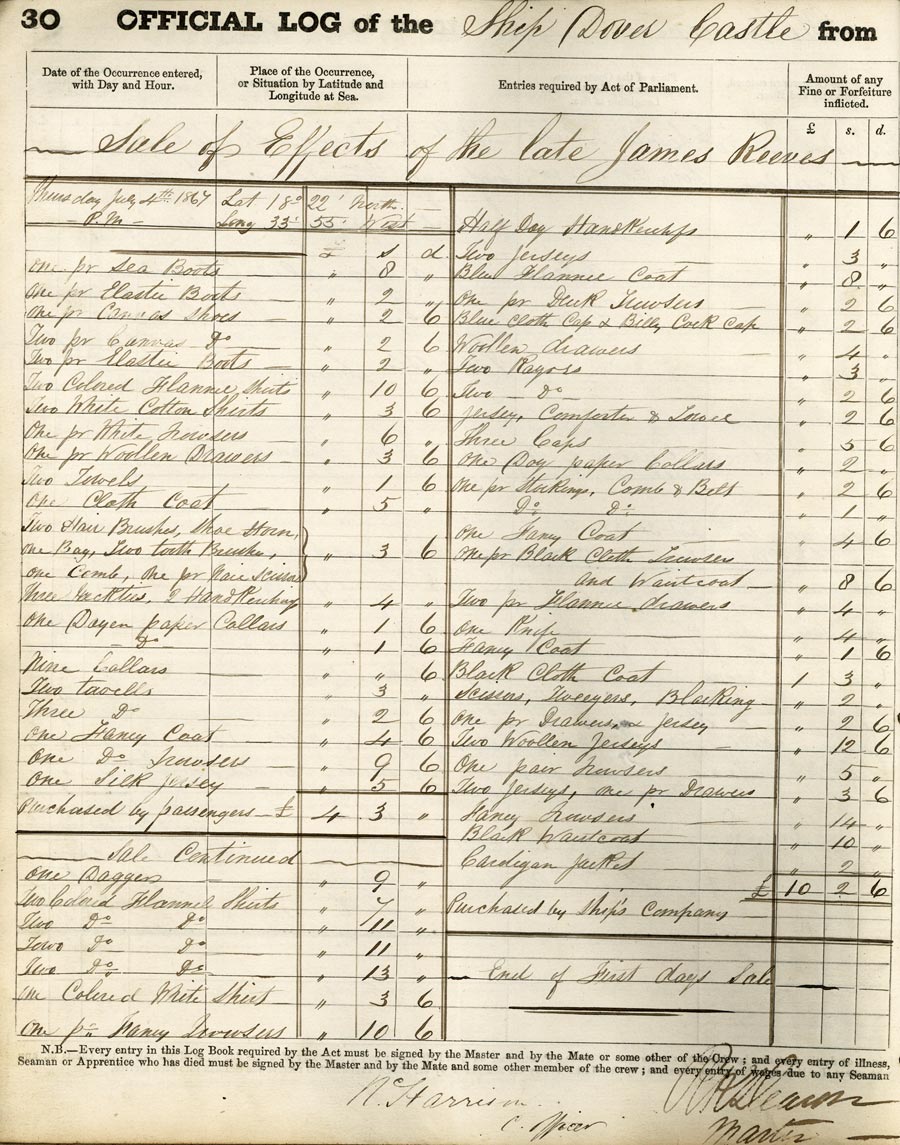 30 OFFICIAL LOG of the Ship Dover Castle from
Date of the Occurrence entered, with Day and Hour.
Place of the Occurrence, or Situation by Latitude and Longitude at Sea.
Entries required by Act of Parliament.
Amount of any Fine or Forfeiture inflicted.
£ s. d.
Sale of Effects of the late James Reeves
Thursday July 4th 1867 Lat 18° 22' North
P.M Long 33° 55' West
£ s d
One pr Sea Boots " 8 "
One pr Elastic Boots " 2 "
One pr Canvas Shoes " 2 6
Two pr Canvas Do " 2 6
Two pr Elastic Boots " 2 "
Two Colored Flannel Shirts " 10 6
Two White Cotton Shirts " 3 6
One pr White Trowsers " 6 "
One pr Woollen Drawers " 3 6
Two Towels " 1 6
One Cloth Coat " 5 "
Two Hair Brushes, Shoe Horn,
one Bag, Two tooth Brushes,
one Comb, one pr Hair Scissors " 3 6
Three Neckties, 2 Handkerchiefs " 4 "
One Dozen paper Collars " 1 6
Do " 1 6
Nine Collars " " 6
Two towells " 3 "
Three Do " 2 6
One Fancy Coat " 4 6
One Do Trowsers " 9 6
One Silk Jersey " 5 6
Purchased by passengers £ 4 3 "
Sale Continued
One Dagger " 9 "
Two Colored Flannel Shirts " 7 "
Two Do Do " 11 "
Towo Do Do " 11 "
Two Do Do " 13 "
One Colored White Shirt " 3 6
One pr Fancy Trowsers " 10 6
Half Doz Handkerchfs " 1 6
Two Jerseys " 3 "
Blue Flannel Coat " 8 "
One pr Duck Trowsers " 2 6
Blue Cloth Cap & Billy Cock Cap " 2 6
Woollen drawers " 4 "
Two Razors " 3 "
Two Do " 2 6
Jersey, Comforter & Towel " 2 6
Three Caps " 5 6
One Doz paper Collars " 2 "
One pr Stockings, Comb & Belt " 2 6
Do Do " 1 "
One Fancy Coat " 4 6
One pr Black Cloth Trowsers
and Waistcoat " 8 6
Two pr Flannel drawers " 4 "
One Knife " 4 "
Fancy Coat " 1 6
Black Cloth Coat 1 3 "
Scissors, Tweezers, Blacking " 2 "
One pr Drawers & Jersey " 2 6
Two Woollen Jerseys " 12 6
One pair Trowsers " 5 "
Two Jerseys, one pr Drawers " 3 6
Fancy Trowsers " 14 "
Black Waistcoat " 10 "
Cardigan Jacket " 2 "
£ 10 2 6
Purchased by Ship's Company
End of First days Sale
N.B.—Every entry in this Log Book required by the Act must be signed by the Master and by the Mate or some other of the Crew; and every entry of illness,
Seaman or Apprentice who has died must be signed by the Master and by the Mate and some other member of the crew; and every entry of wages due to any Seaman
Harrison
C. Officer
Master